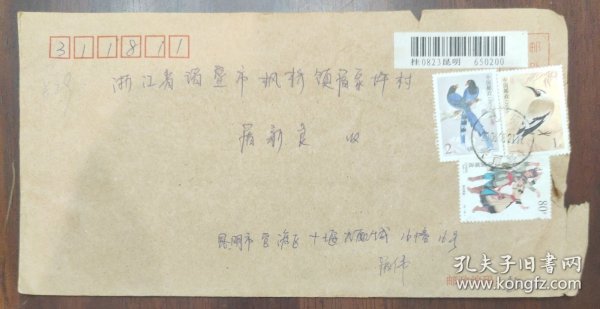 311811
桂0823昆明 650200
浙江省诸暨市枫桥镇屠家坞村
屠新良 收
中国邮政
2
1
80
昆明市官渡区十
16幢16号
张伟
孔夫子旧书网
www.kongfz.com